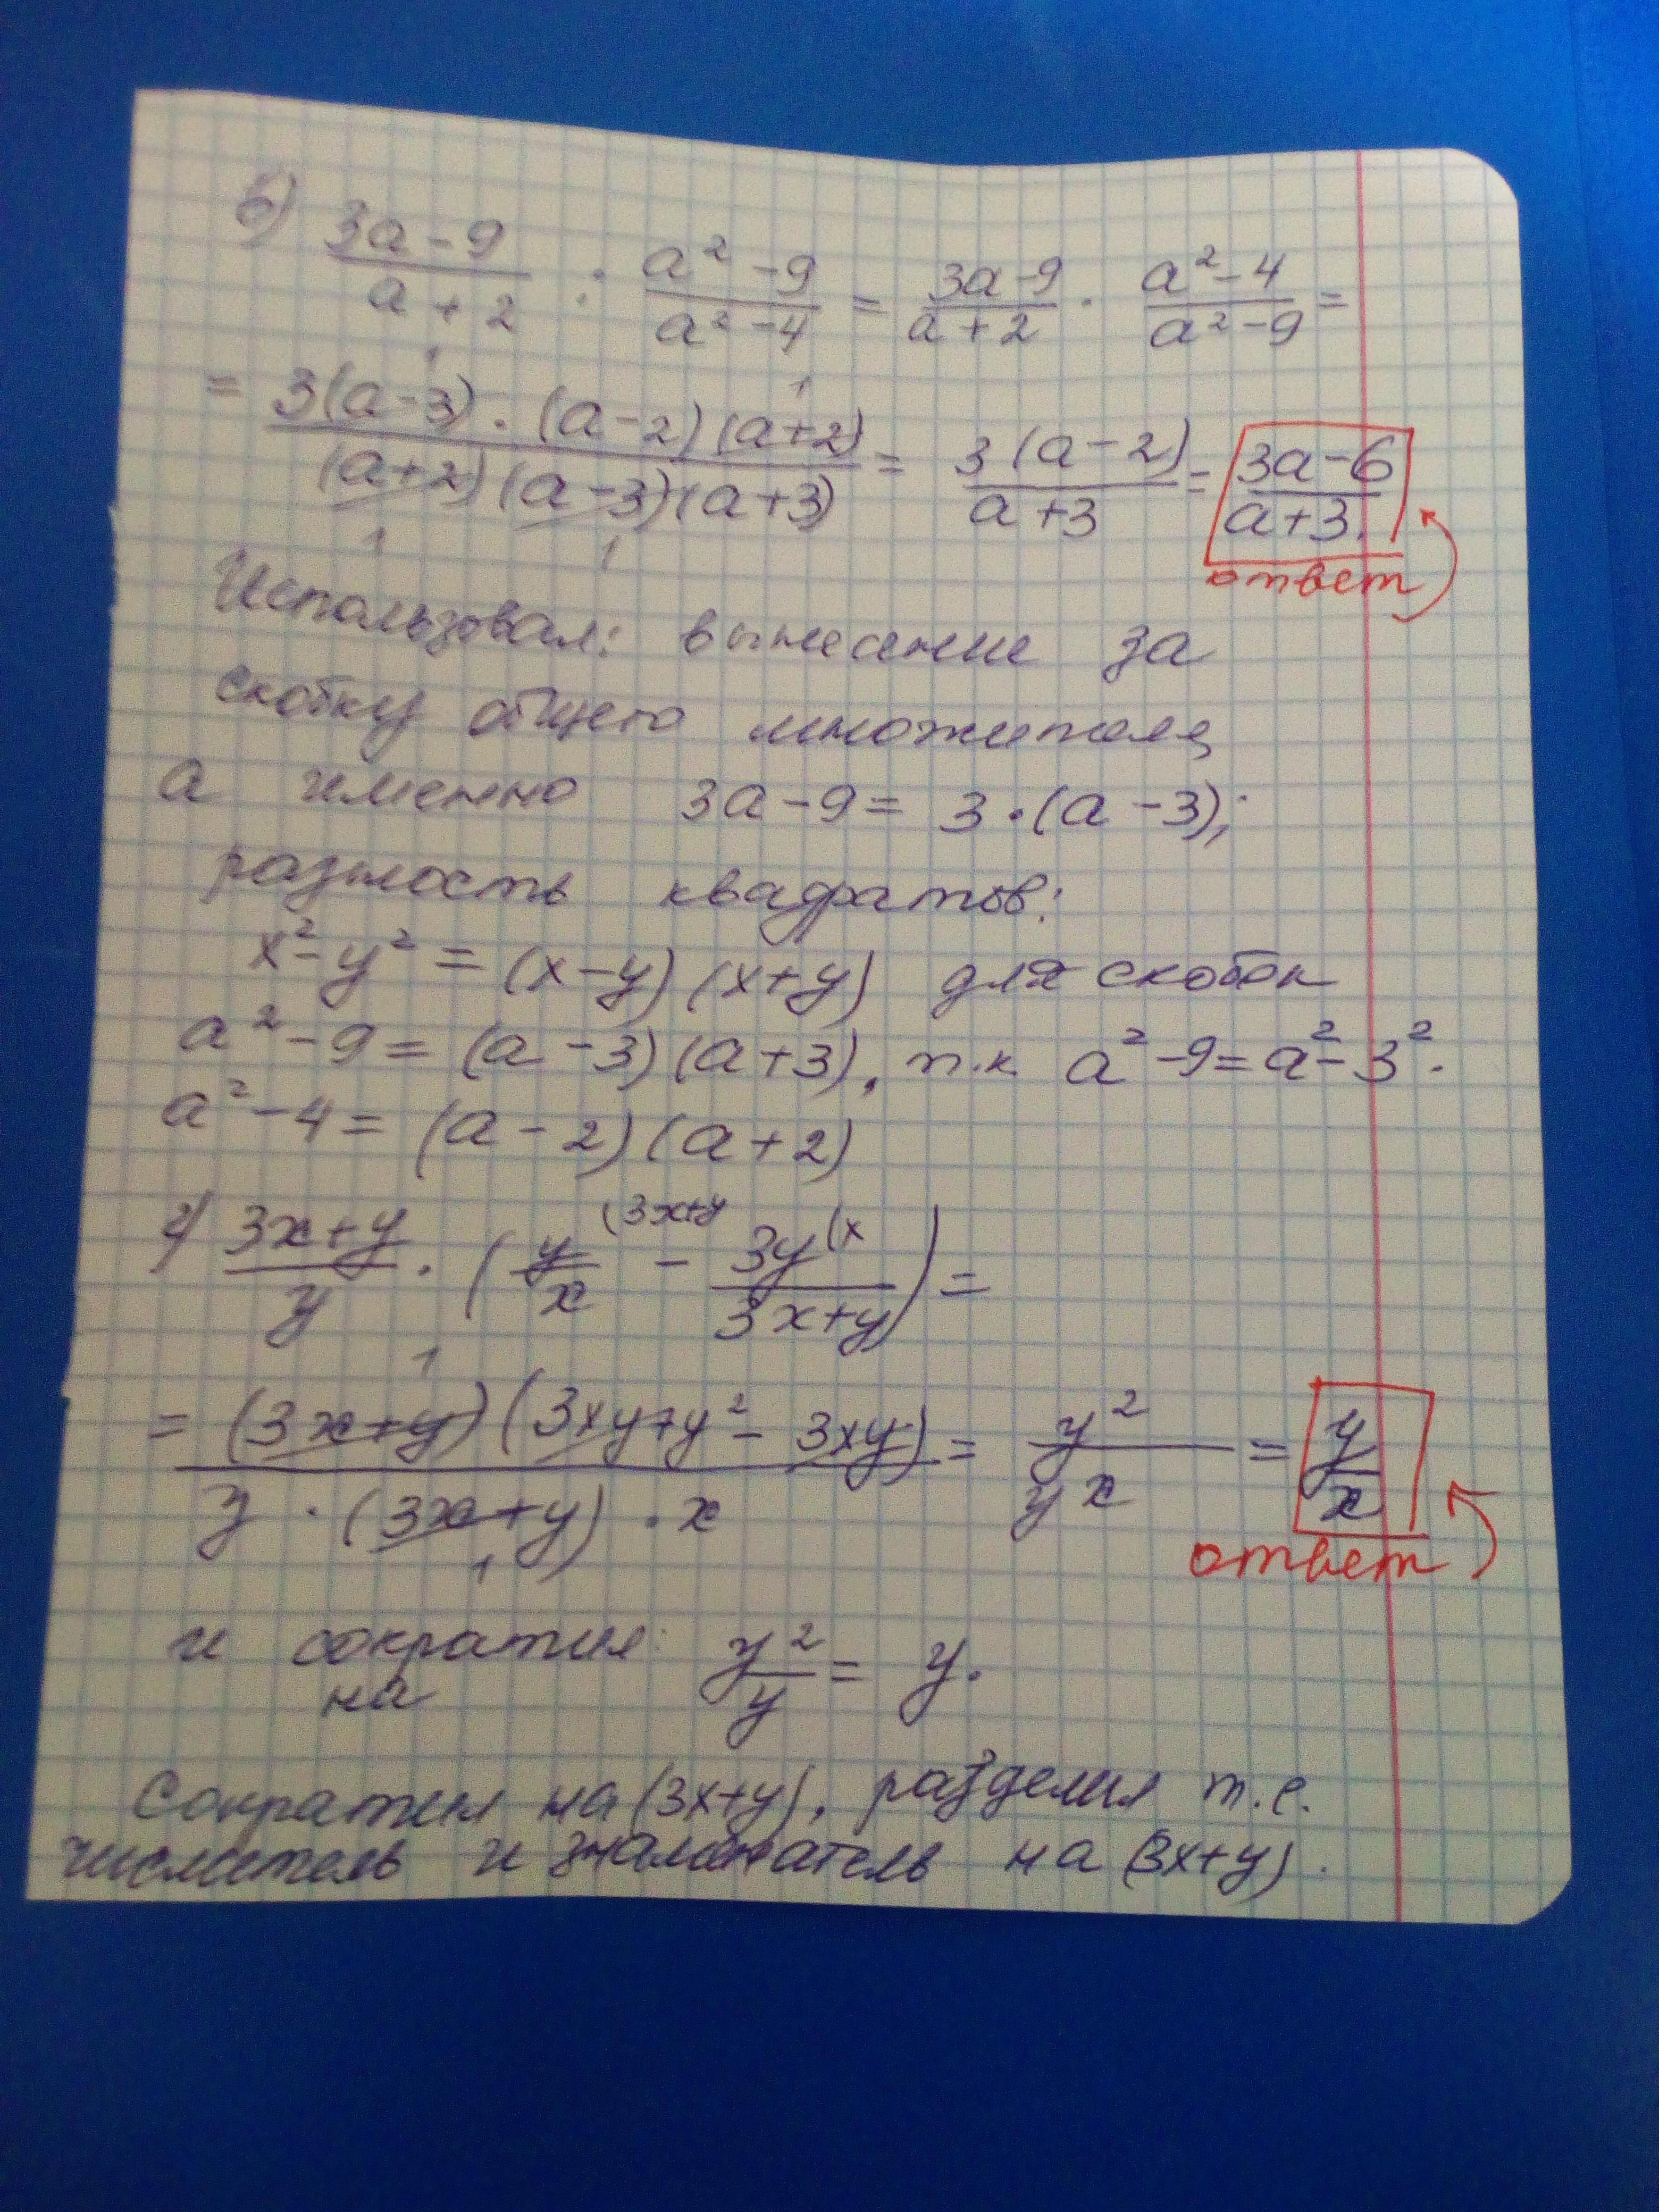 б) (3a-9)/(a+2) : (a²-9)/(a²-4) = (3a-9)/(a+2) · (a²-4)/(a²-9) =
= (3(a-3)·(a-2)(a+2))/((a+2)(a-3)(a+3)) = (3(a-2))/(a+3) = (3a-6)/(a+3).
ответ
Использовал: вынесение за
скобку общего множителя,
а именно 3a-9 = 3·(a-3);
разность квадратов:
x²-y² = (x-y)(x+y) для скобок
a²-9 = (a-3)(a+3), т.к a²-9=a²-3².
a²-4 = (a-2)(a+2)
г) (3x+y)/y · (y/x (3x+y - 3y(x/(3x+y)) =
= ((3x+y)(3xy+y²-3xy))/(y·(3x+y)·x) = y²/(yx) = y/x
ответ
и сократил y²/y = y.
на
Сократил на (3x+y), разделил т.е.
числитель и знаменатель на (3x+y).